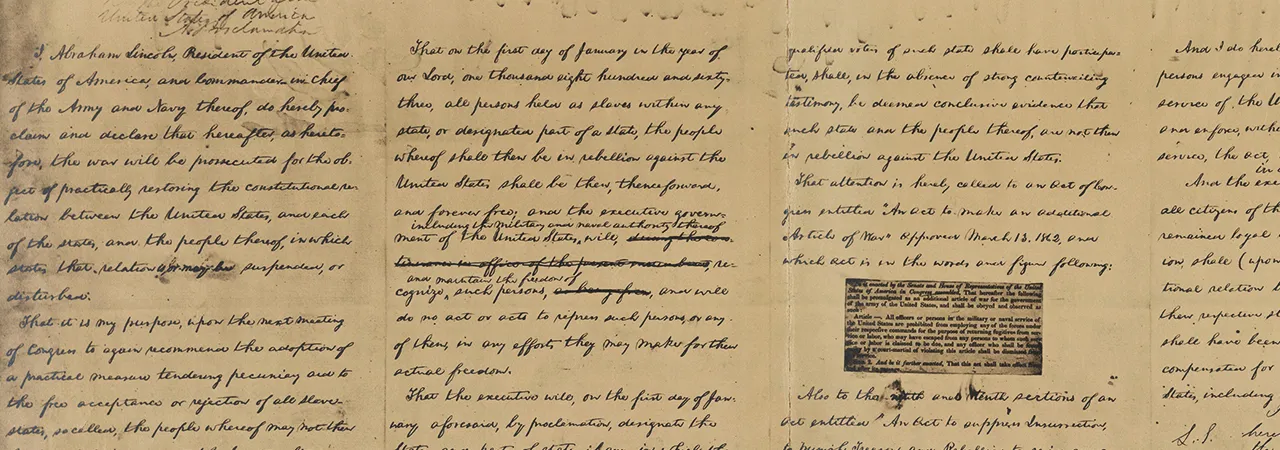 United States of America
A Proclamation
I, Abraham Lincoln, President of the United
States of America, and Commander-in-Chief
of the Army and Navy thereof, do hereby pro-
claim and declare that hereafter, as hereto-
fore, the war will be prosecuted for the ob-
ject of practically restoring the constitutional re-
lation between the United States, and each
of the states, and the people thereof, in which
states that relation is, or may be suspended, or
disturbed.
That it is my purpose, upon the next meeting
of Congress to again recommend the adoption of
a practical measure tendering pecuniary aid to
the free acceptance or rejection of all slave-
states, so called, the people whereof may not then
That on the first day of January in the year of
our Lord, one thousand eight hundred and sixty-
three, all persons held as slaves within any
state, or designated part of a state, the people
whereof shall then be in rebellion against the
United States shall be then, thenceforward,
and forever free; and the executive govern-
including the military and naval authority thereof
ment of the United States, will, during the con-
tinuance in office of the present incumbent, re-
and maintain the freedom of
cognize, such persons, as being free, and will
do no act or acts to repress such persons, or any
of them, in any efforts they may make for their
actual freedom.
That the executive will, on the first day of Jan-
uary aforesaid, by proclamation, designate the
qualified voters of such state shall have participa-
ted, shall, in the absence of strong countervailing
testimony, be deemed conclusive evidence that
such state and the people thereof, are not then
in rebellion against the United States.
That attention is hereby called to an act of Con-
gress entitled "An act to make an additional
Article of War" approved March 13, 1862, and
which act is in the words and figure following:
Be it enacted by the Senate and House of Representatives of the United
States of America in Congress assembled, That hereafter the following
shall be promulgated as an additional article of war for the government
of the army of the United States, and shall be obeyed and observed as
such:
Article —. All officers or persons in the military or naval service of
the United States are prohibited from employing any of the forces under
their respective commands for the purpose of returning fugitives from ser-
vice or labor, who may have escaped from any persons to whom such ser-
vice or labor is claimed to be due, and any officer who shall be found
guilty by a court-martial of violating this article shall be dismissed from
the service.
Sec. 2. And be it further enacted, That this act shall take effect from
and after its passage.
Also to the ninth and tenth sections of an
act entitled "An Act to suppress Insurrection,
And I do here
persons engaged in
service of the U
and enforce, with
service, the act,
And the exe
all citizens of th
remained loyal
ion, shall (upon
tional relation b
their respective st
shall have been
compensated for
States, including